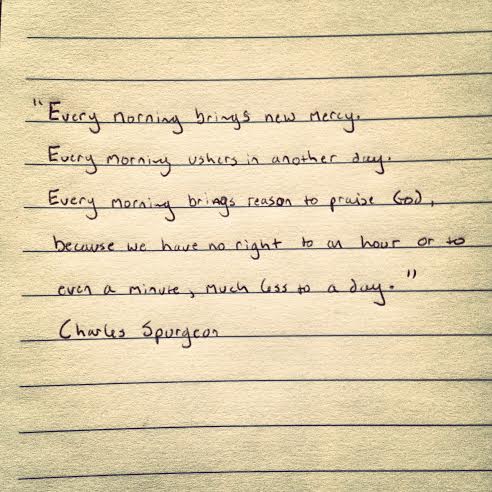 "Every morning brings new mercy.
Every morning ushers in another day.
Every morning brings reason to praise God,
because we have no right to an hour or to
even a minute, much less to a day."
Charles Spurgeon